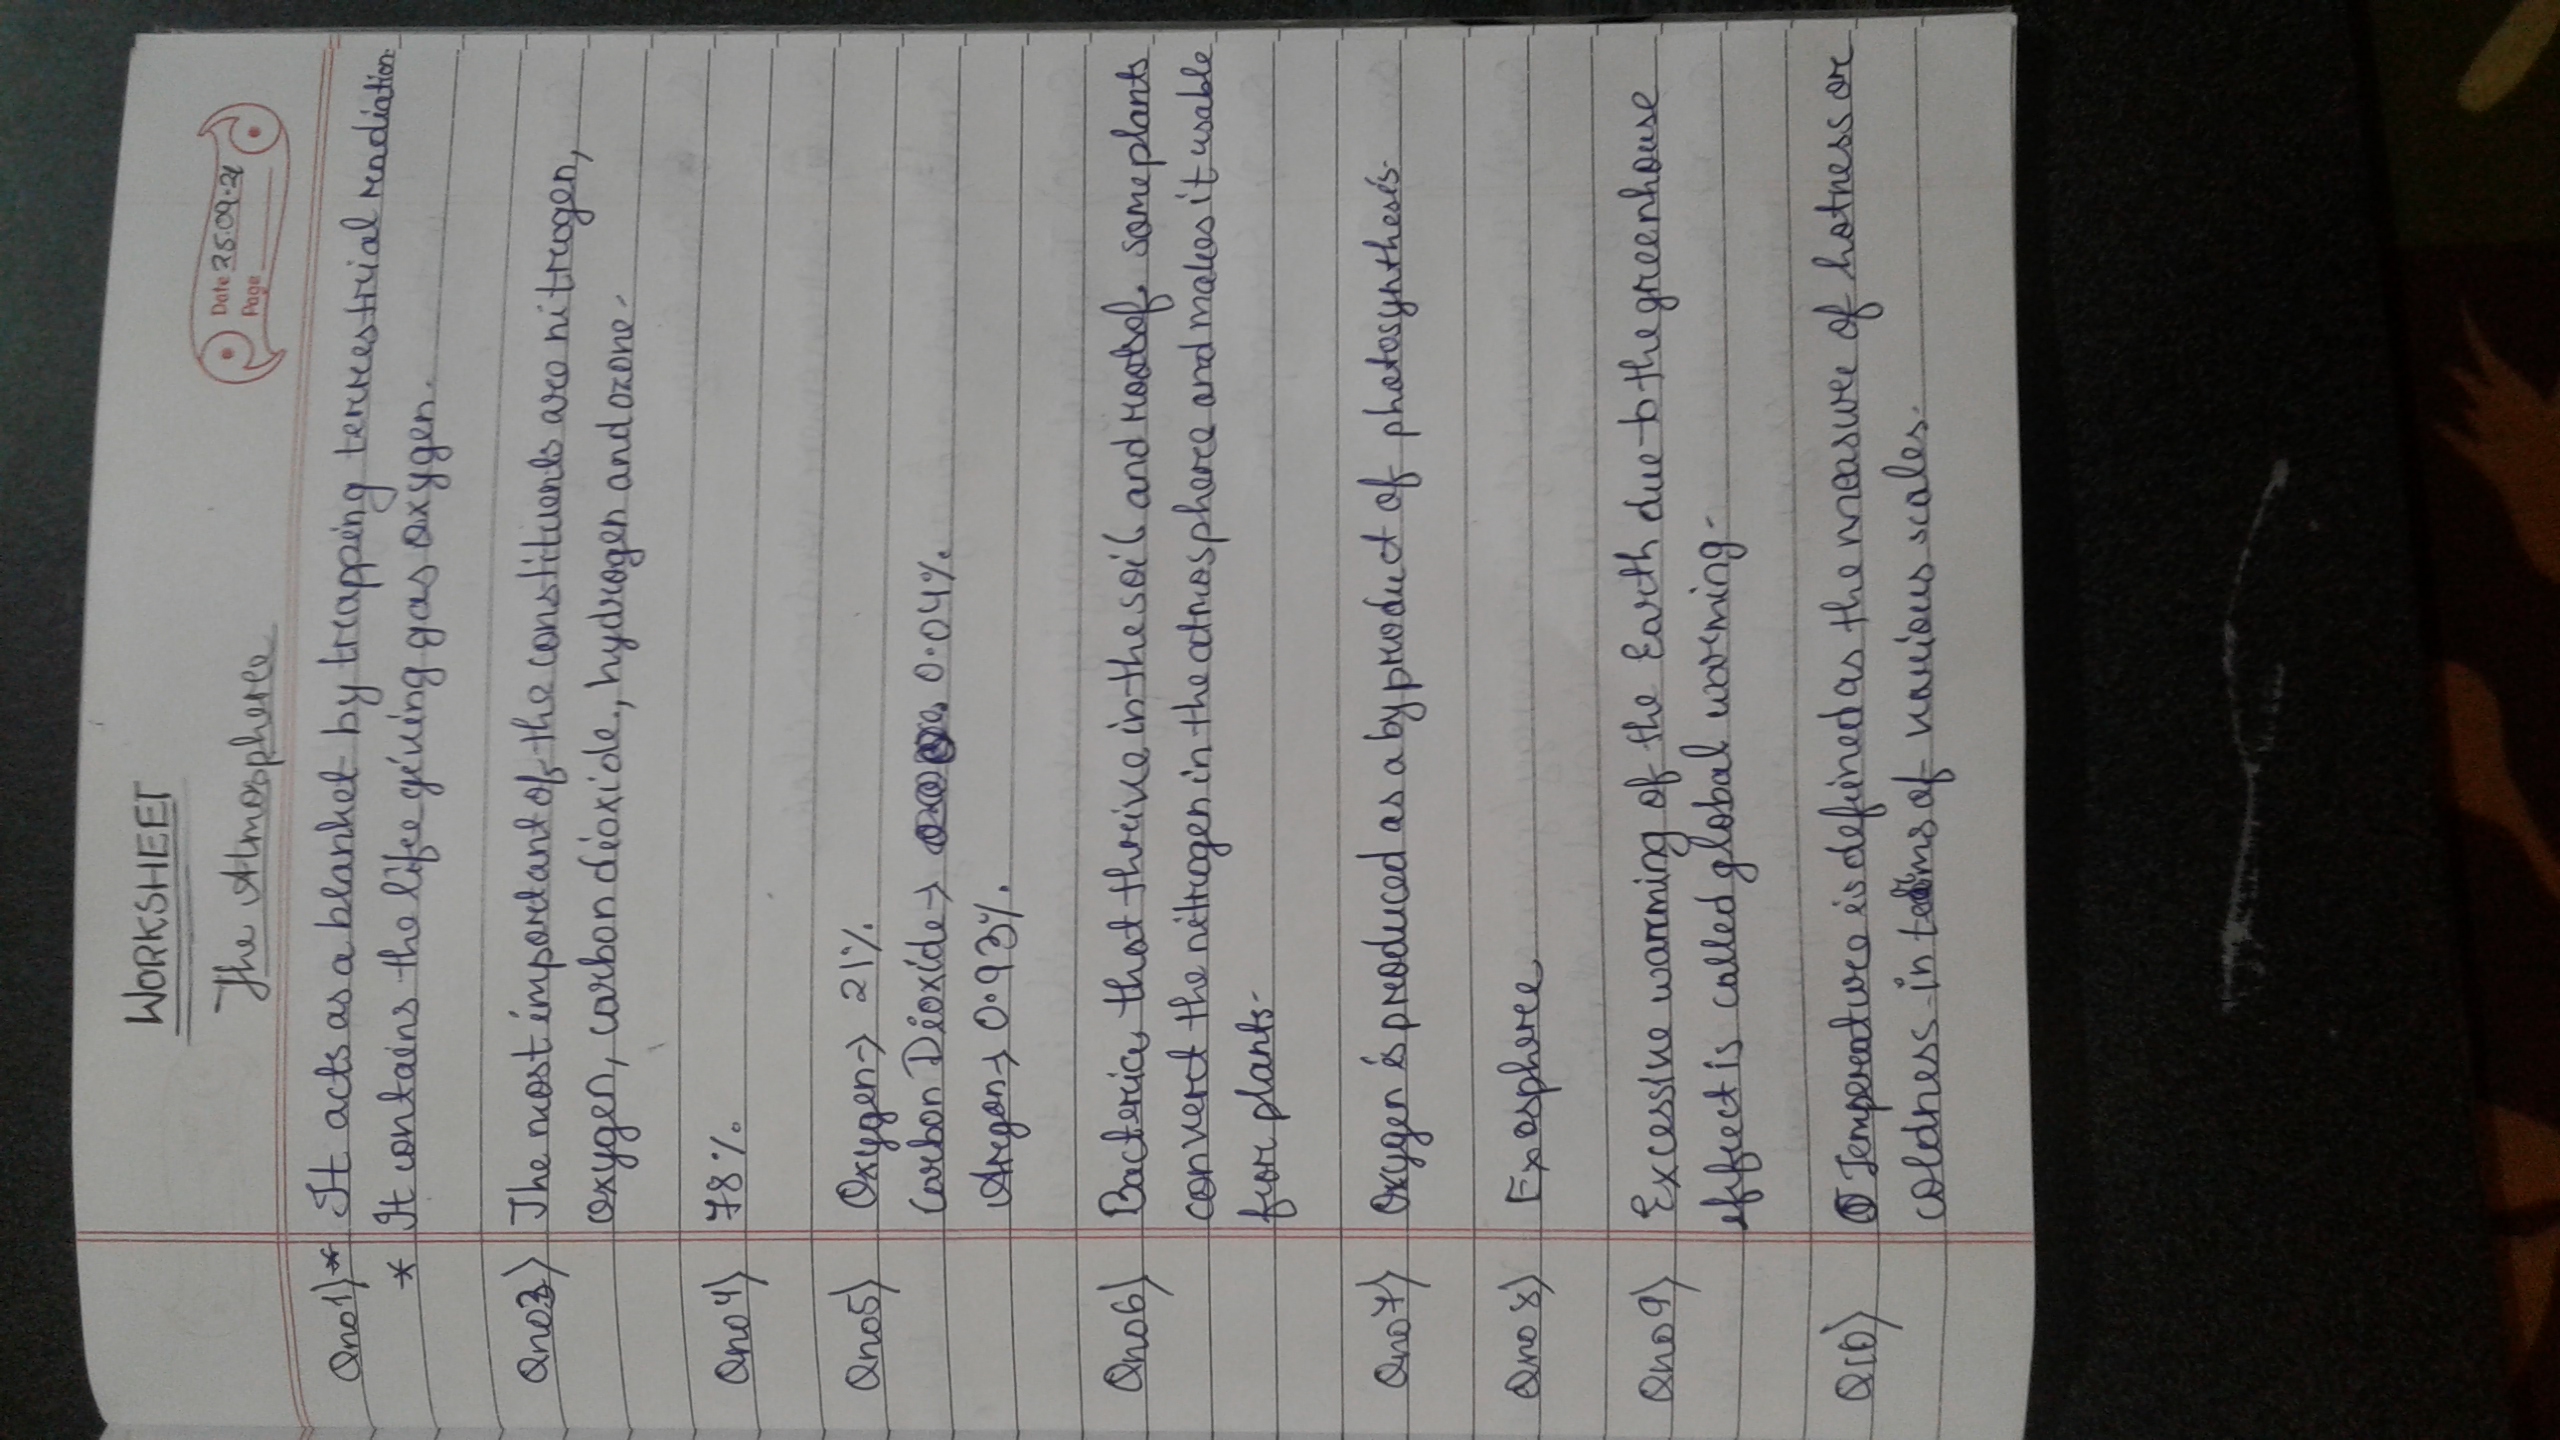 WORKSHEET
Date 25.09.21
Page
The Atmosphere
Qno1) * It acts as a blanket by trapping terrestrial rendiation.
* It contains the life giving gas oxygen.
Qno3) The most important of the constituents are nitrogen,
oxygen, carbon dioxide, hydrogen and ozone.
Qno4) 78%.
Qno5) Oxygen → 21%.
Carbon Dioxide → 0.04%.
Argon → 0.93%.
Qno6) Bacteria, that thrive in the soil and roots of some plants
convert the nitrogen in the atmosphere and makes it usable
for plants.
Qno7) Oxygen is produced as a by product of photosynthesis.
Qno8) Exosphere
Qno9) Excessive warming of the Earth due to the greenhouse
effect is called global warming.
Q10) Temperature is defined as the measure of hotness or
coldness in terms of various scales.